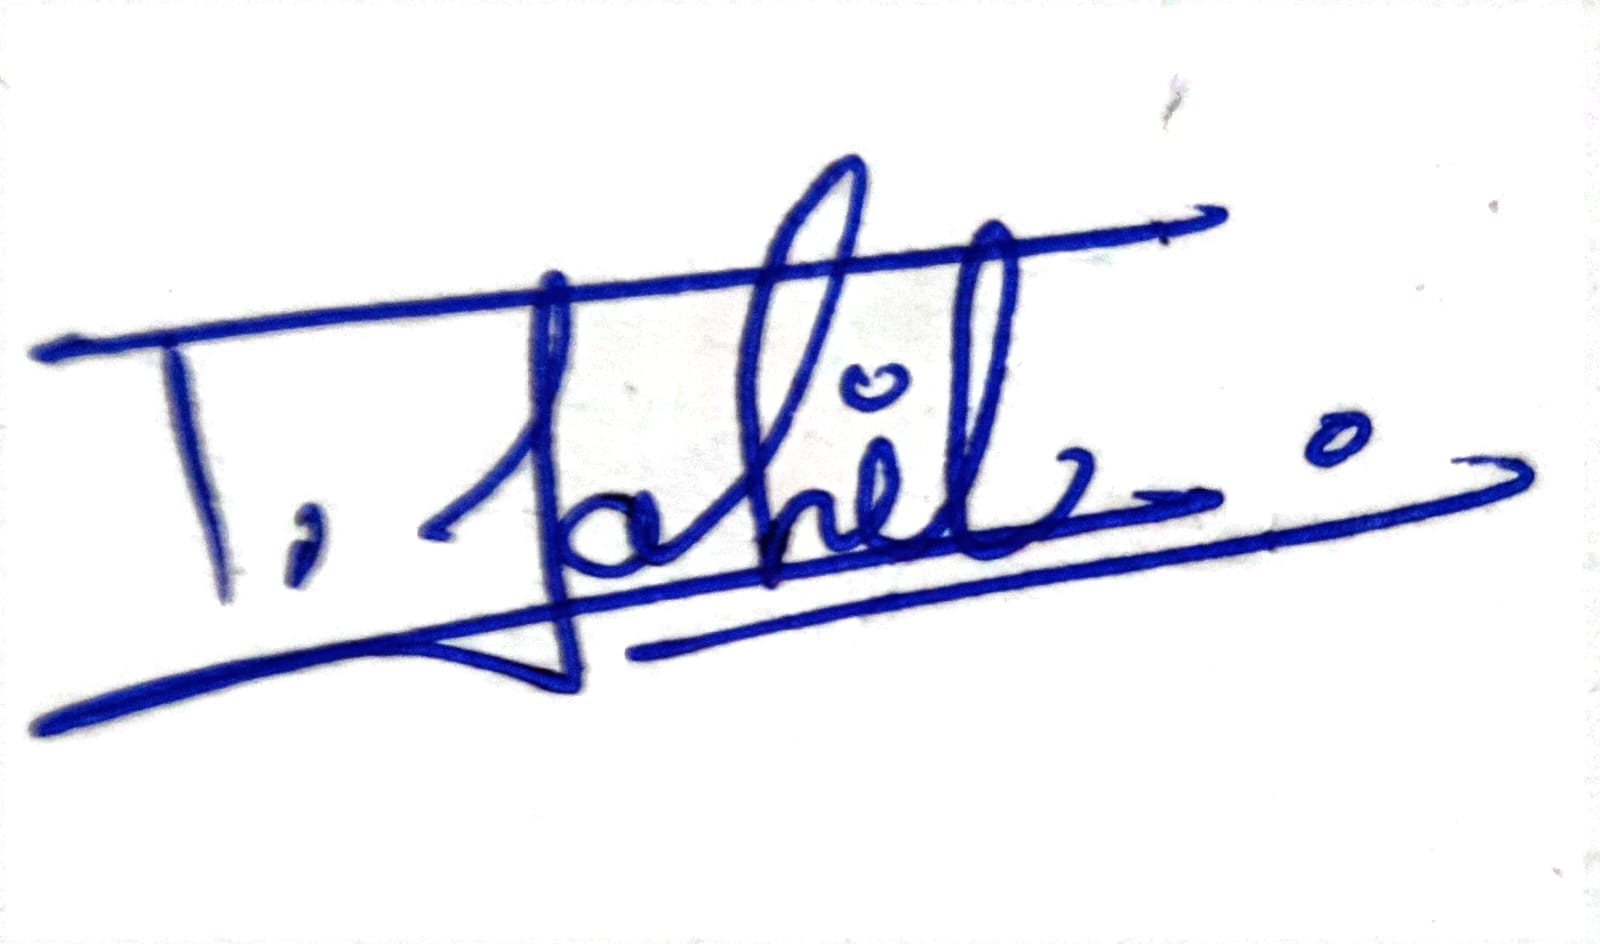 T. Sahil